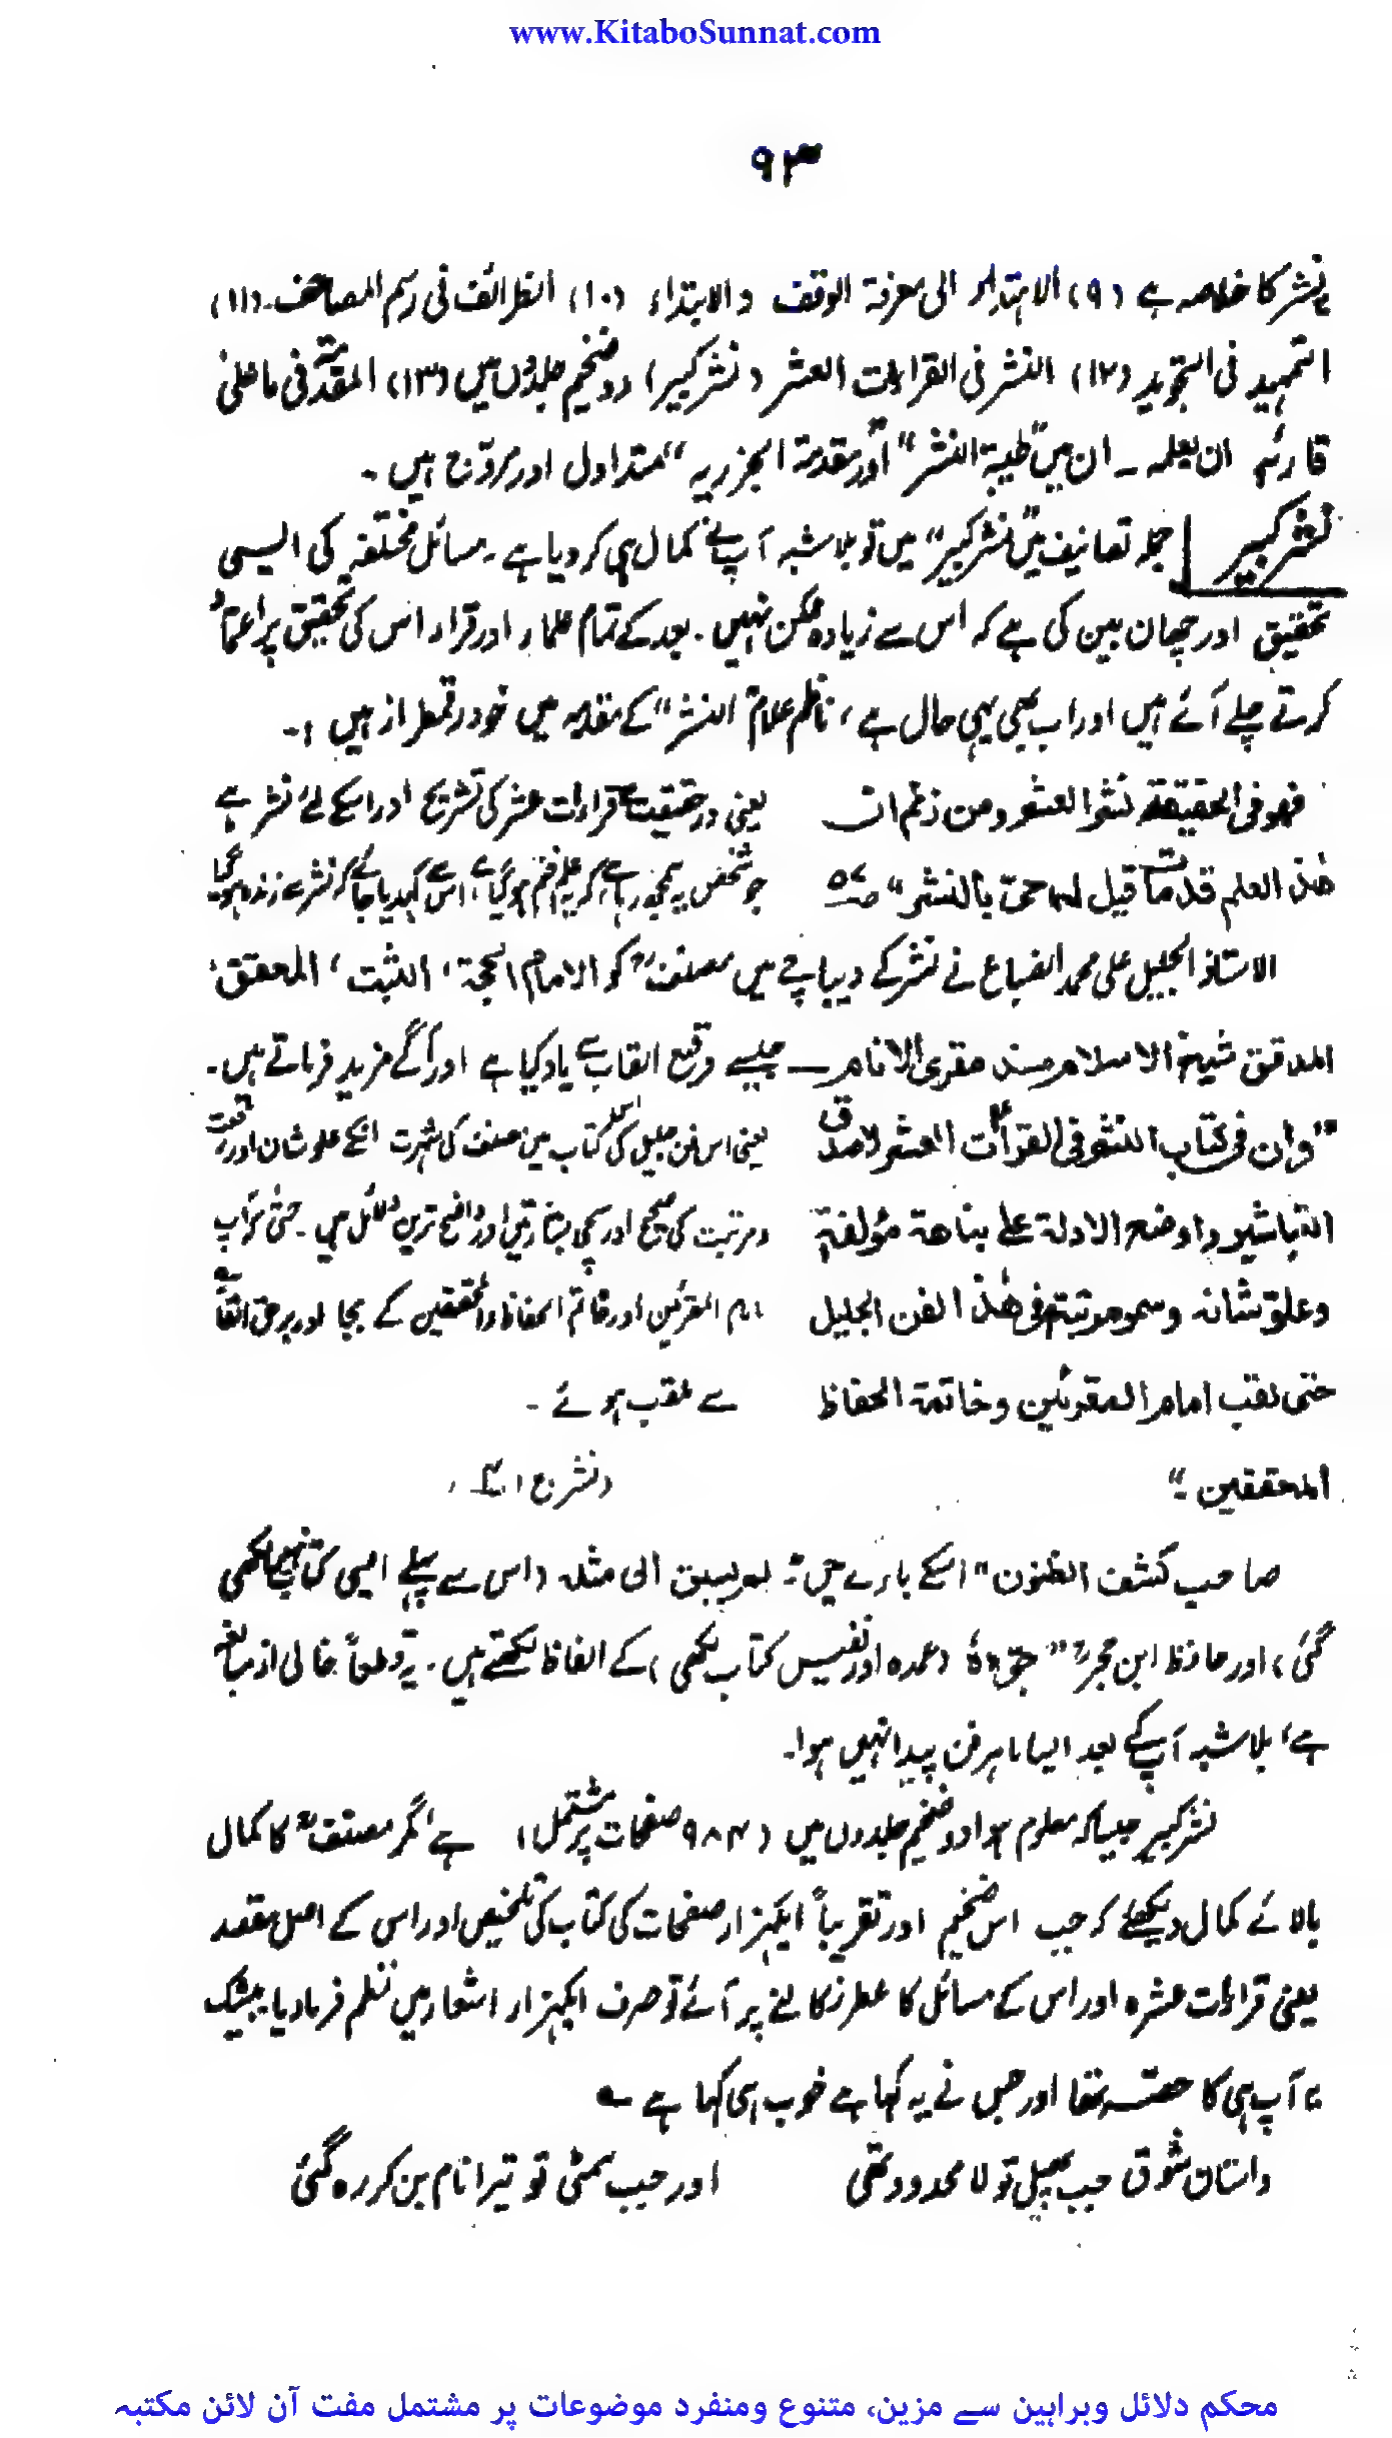 www.KitaboSunnat.com
۹۳
یہ نشر کا خلاصہ ہے (۹) الاہتداء الی معرفۃ الوقف والابتداء (۱۰) الظرائف فی رسم المصاحف۔ (۱۱)
التمہید فی التجوید (۱۲) النشر فی القراءات العشر (نشر کبیر) دو ضخیم جلدوں میں (۱۳) المقدمۃ فی ما علیٰ
قارئہ ان یعلمہ ۔ ان میں "طیبۃ النشر" اور "مقدمۃ الجزریہ" متداول اور مروّج ہیں ۔
نشر کبیر
جملہ تصانیف میں "نشر کبیر" میں تو بلاشبہ آپ نے کمال ہی کر دیا ہے ۔ مسائل مختلفہ کی ایسی
تحقیق اور چھان بین کی ہے کہ اس سے زیادہ ممکن نہیں ۔ بعد کے تمام علماء اور قراء اس کی تحقیق پر اعتماد
کرتے چلے آئے ہیں اور اب بھی یہی حال ہے ، ناظم علامؒ "النشر" کے مقدمہ میں خود رقمطراز ہیں :۔
فھو فی الحقیقۃ نشر العشر ومن زعم ان
یعنی درحقیقت یہ قراءات عشر کی تشریح اور اسکے لئے نشر ہے
ھٰذا العلم قد مات قیل لہ حیّ بالنشر"
جو شخص یہ سمجھ رہا ہے کہ یہ علم ختم ہو گیا ہے، اس سے کہدیا جائے کہ نشر سے زندہ ہو گیا
الاستاذ الجلیل علی محمد الضباع نے نشر کے دیباچے میں مصنفؒ کو الامام الحجۃ ، الثبت ، المحقق ،
المدقق شیخ الاسلام سند مقرئ الانام ـــ جیسے وقیع القاب سے یاد کیا ہے اور آگے مزید فرماتے ہیں ۔
"وان فی کتاب النشر فی القراٰت العشر لاصدق
یعنی اس فن جلیل کی اس کتاب میں مصنف کی شہرت انکے علو شان اور رفعت
التباشیر واوضح الادلۃ علی نباھۃ مؤلفہٖ
ومرتبت کی صحیح اور سچی بشارتیں اور واضح ترین دلائل ہیں ۔ حتیٰ کہ آپ
وعلوّ شانہ وسمو مرتبتہ فی ھٰذا الفن الجلیل
امام المقرئین اور خاتم الحفاظ والمحققین کے بجا اور برحق القاب
حتی لقب امام المقرئین وخاتمۃ الحفاظ
سے ملقب ہوئے ۔
المحققین ۔"
(نشر ج ۱
صاحب کشف الظنون" اسکے بارے میں : لم یسبق الی مثلہ (اس سے پہلے ایسی کتاب نہیں لکھی
گئی) اور حافظ ابن حجرؒ "جوّدہٗ (عمدہ اور نفیس کتاب لکھی) کے الفاظ لکھتے ہیں ۔ یہ قطعاً خالی از مبالغہ
ہے ، بلاشبہ آپ کے بعد ایسا ماہر فن پیدا نہیں ہوا۔
نشر کبیر جیسا کہ معلوم ہوا دو ضخیم جلدوں میں (۹۸۴ صفحات پر مشتمل) ہے ، مگر مصنفؒ کا کمال
بالائے کمال دیکھئے کہ جب اس ضخیم اور تقریباً ایکہزار صفحات کی کتاب کی تلخیص اور اس کے اصل مقصد
یعنی قراءات عشرہ اور اس کے مسائل کا عطر نکالنے پر آئے تو صرف ایکہزار اشعار میں نظم فرما دیا ، بیشک
یہ آپ ہی کا حصّہ تھا اور جس نے یہ کہا ہے خوب ہی کہا ہے ؎
داستان شوق جب پھیلی تو لا محدود تھی
اور جب سمٹی تو تیرا نام بن کر رہ گئی
محکم دلائل وبراہین سے مزین، متنوع ومنفرد موضوعات پر مشتمل مفت آن لائن مکتبہ